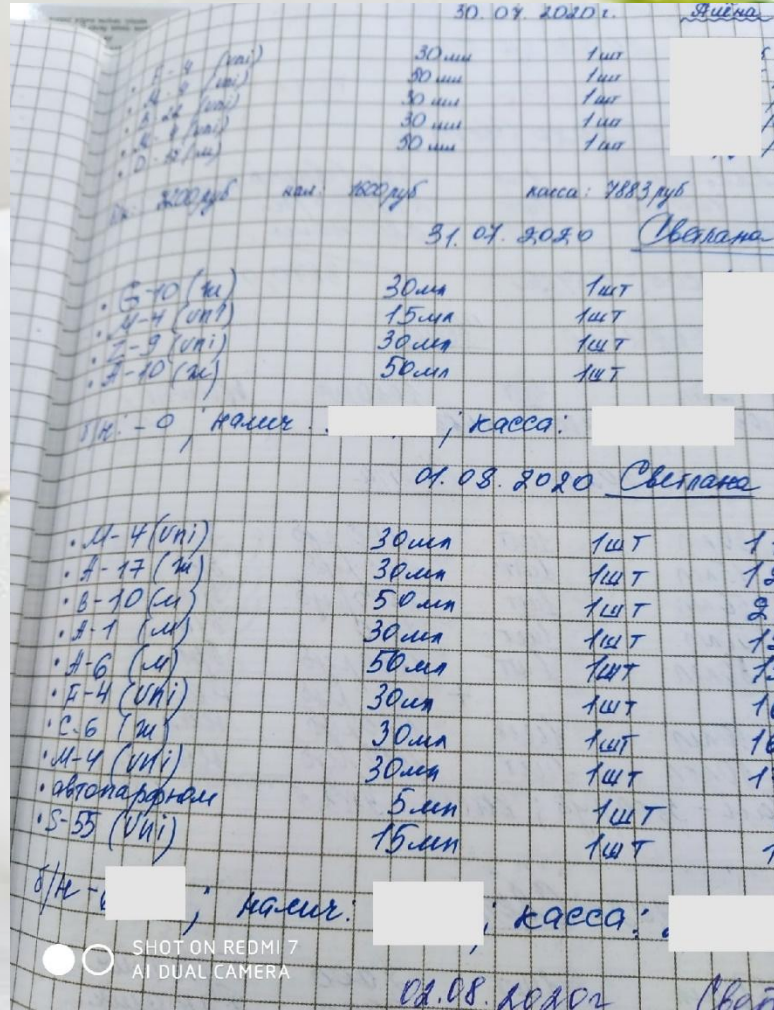 30.07.2020г. Алёна
(uni) 30 мл 1 шт
(uni) 50 мл 1 шт
(uni) 30 мл 1 шт
(uni) 30 мл 1 шт
(м) 50 мл 1 шт
нал: 1600 руб касса: 7883 руб
31.07.2020 Светлана
• G-10 (ж) 30мл 1шт
• M-4 (uni) 15мл 1шт
• Z-9 (uni) 30мл 1шт
• A-10 (ж) 50мл 1шт
б/н: -0 ; налич. ; касса:
01.08.2020 Светлана
• M-4 (uni) 30мл 1шт
• A-17 (ж) 30мл 1шт
• B-10 (м) 50мл 1шт
• A-1 (м) 30мл 1шт
• A-6 (м) 50мл 1шт
• F-4 (uni) 30мл 1шт
• C-6 (ж) 30мл 1шт
• M-4 (uni) 30мл 1шт
• автопарфюм 5мл 1шт
• S-55 (uni) 15мл 1шт
б/н - ; налич: ; касса:
SHOT ON REDMI 7
AI DUAL CAMERA
02.08.2020г